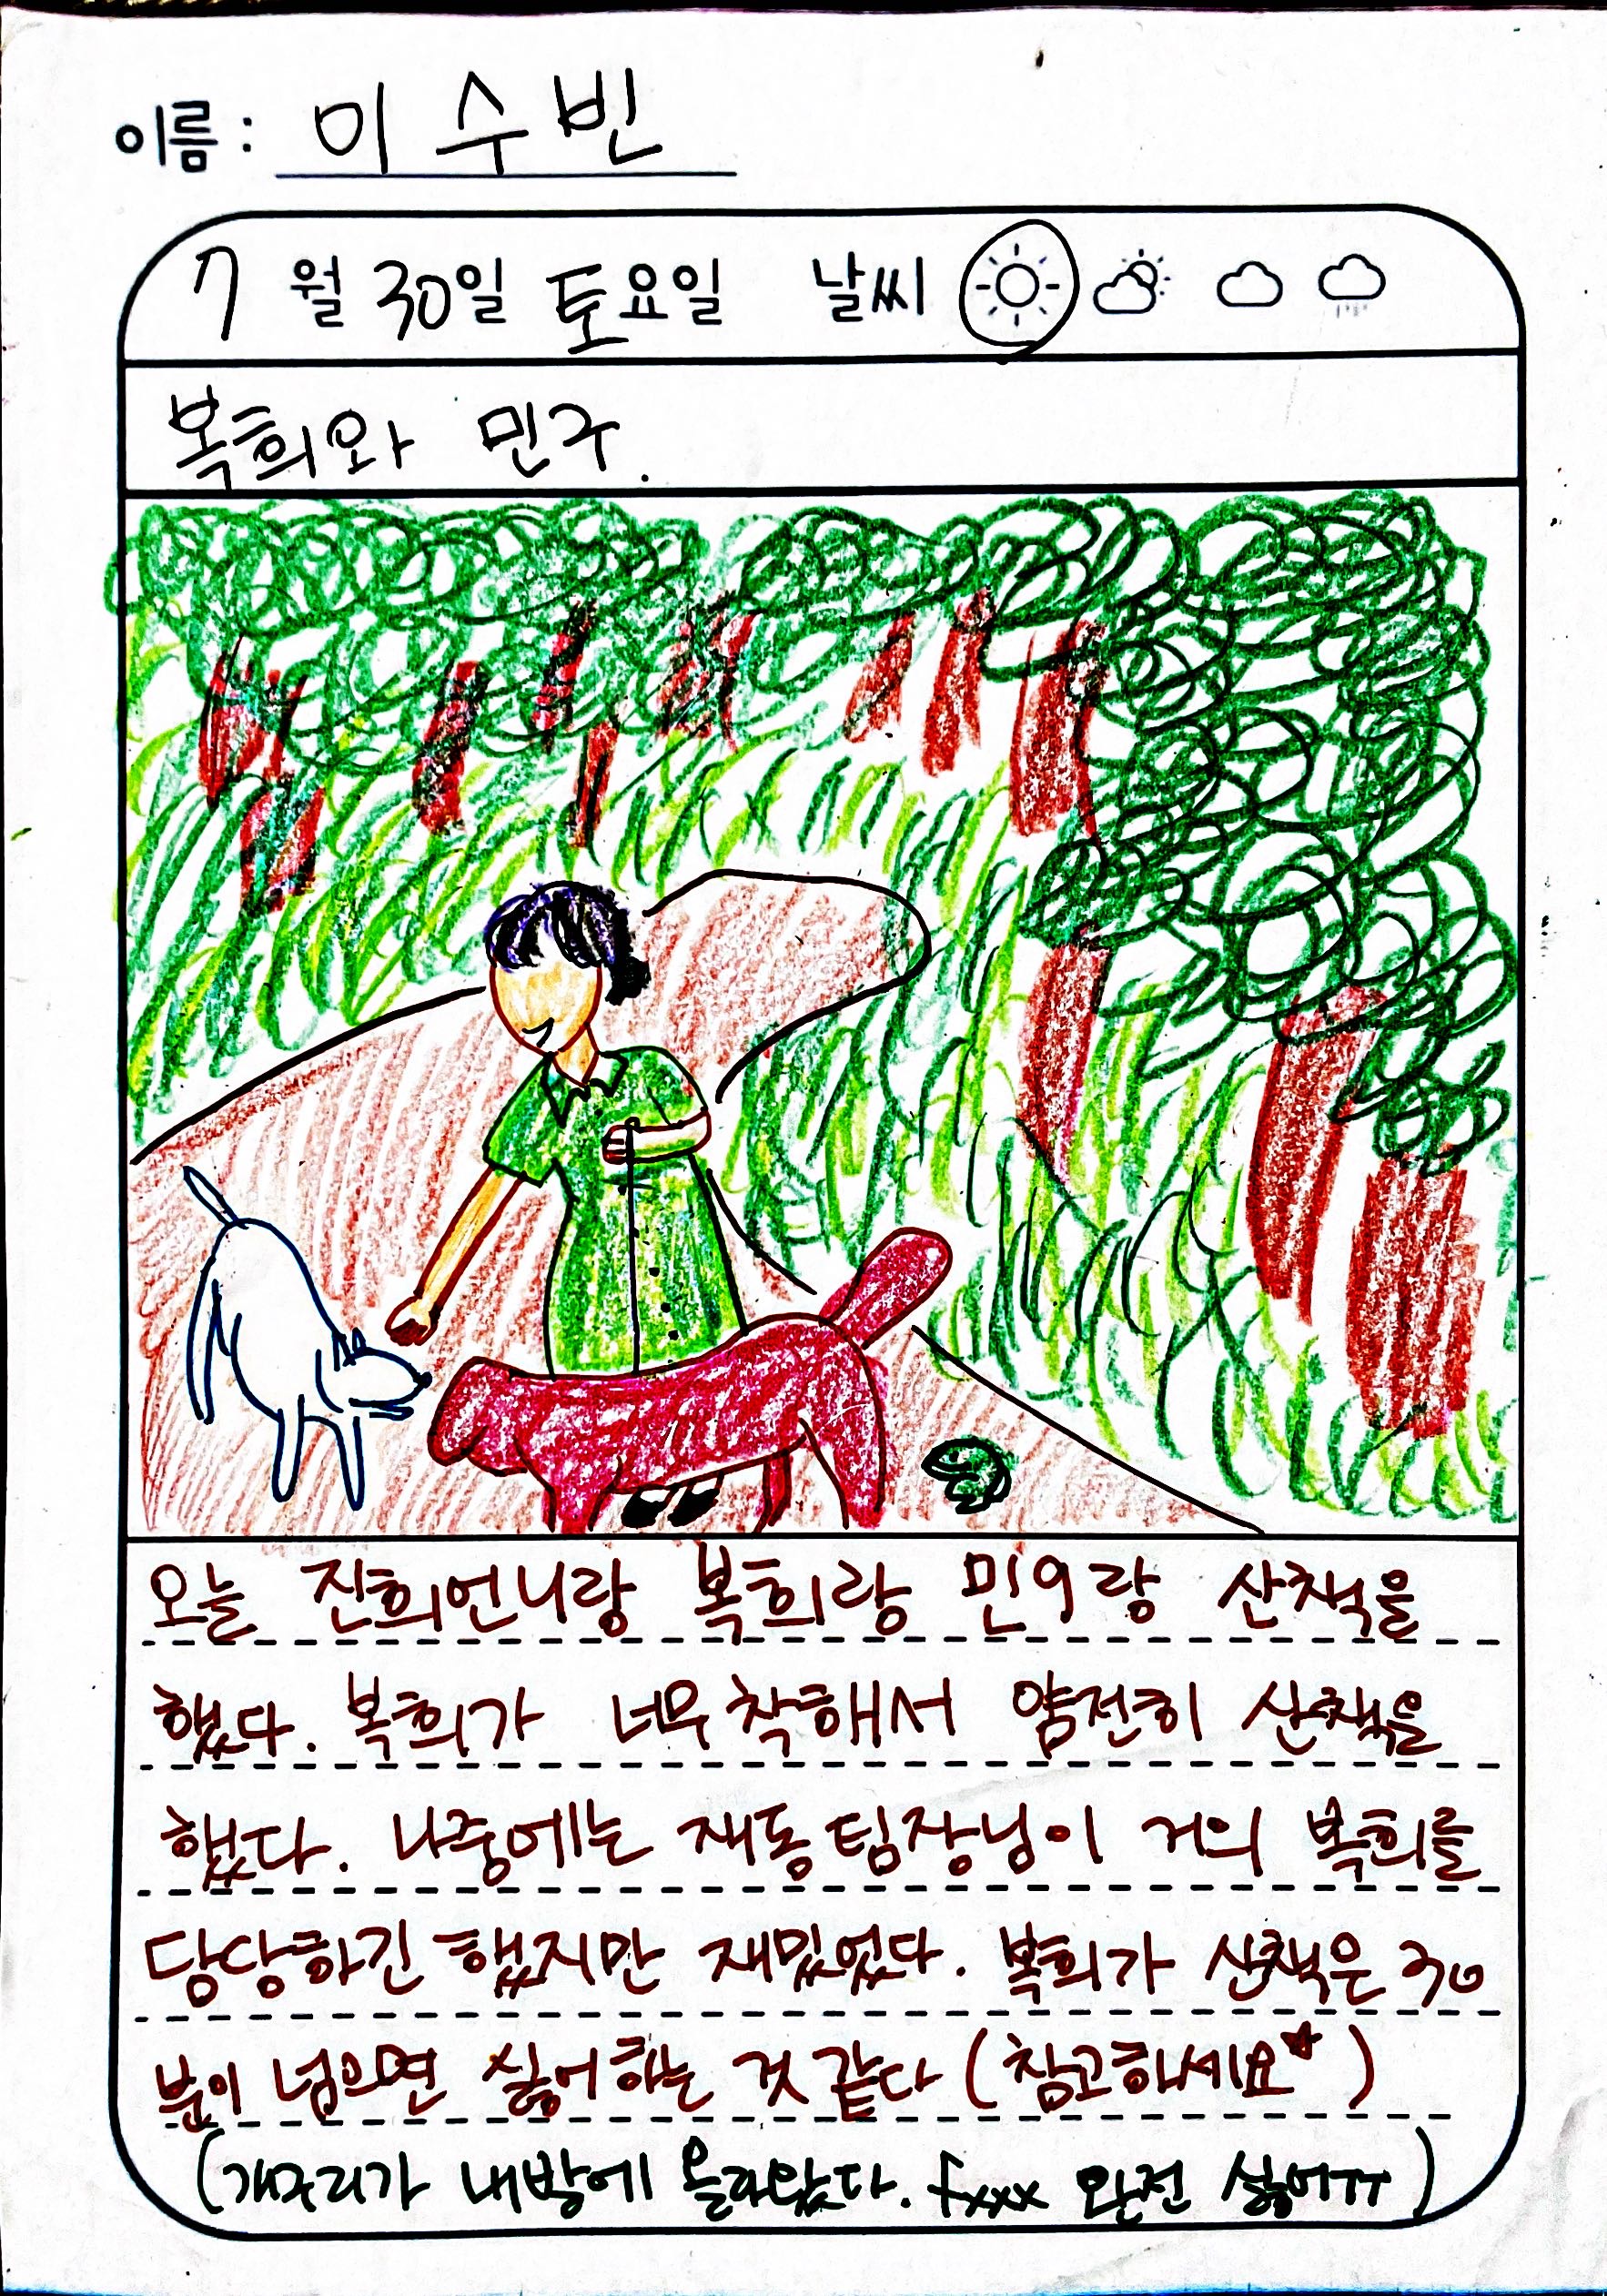 이름: 이수빈
7월 30일 토요일 날씨
복희와 민구.
오늘 진희언니랑 복희랑 민9랑 산책을
했다. 복희가 너무 착해서 얌전히 산책을
했다. 나중에는 재동팀장님이 거의 복희를
담당하긴 했지만 재밌었다. 복희가 산책은 30
분이 넘으면 싫어하는 것 같다 (참고하세요★)
(개구리가 내방에 올라왔다. fxxx 완전 싫어ㅠㅠ)